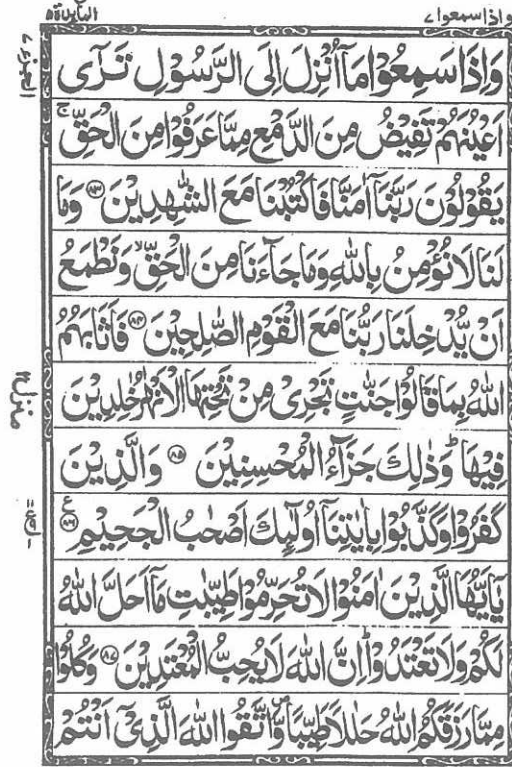 واذا سمعوا ٧
المآئدة ٥
الجزء ٧
وَاِذَا سَمِعُوۡا مَاۤ اُنۡزِلَ اِلَى الرَّسُوۡلِ تَرٰٓى
اَعۡيُنَهُمۡ تَفِيۡضُ مِنَ الدَّمۡعِ مِمَّا عَرَفُوۡا مِنَ الۡحَقِّۚ
يَقُوۡلُوۡنَ رَبَّنَاۤ اٰمَنَّا فَاكۡتُبۡنَا مَعَ الشّٰهِدِيۡنَ ﴿٨٣﴾ وَمَا
لَنَا لَا نُؤۡمِنُ بِاللّٰهِ وَمَا جَآءَنَا مِنَ الۡحَقِّۙ وَنَطۡمَعُ
اَنۡ يُّدۡخِلَنَا رَبُّنَا مَعَ الۡقَوۡمِ الصّٰلِحِيۡنَ ﴿٨٤﴾ فَاَثَابَهُمُ
اللّٰهُ بِمَا قَالُوۡا جَنّٰتٍ تَجۡرِىۡ مِنۡ تَحۡتِهَا الۡاَنۡهٰرُ خٰلِدِيۡنَ
فِيۡهَاؕ وَذٰلِكَ جَزَآءُ الۡمُحۡسِنِيۡنَ ﴿٨٥﴾ وَالَّذِيۡنَ
كَفَرُوۡا وَكَذَّبُوۡا بِاٰيٰتِنَاۤ اُولٰٓئِكَ اَصۡحٰبُ الۡجَحِيۡمِ ﴿٨٦﴾ ع
يٰۤاَيُّهَا الَّذِيۡنَ اٰمَنُوۡا لَا تُحَرِّمُوۡا طَيِّبٰتِ مَاۤ اَحَلَّ اللّٰهُ
لَكُمۡ وَلَا تَعۡتَدُوۡاؕ اِنَّ اللّٰهَ لَا يُحِبُّ الۡمُعۡتَدِيۡنَ ﴿٨٧﴾ وَكُلُوۡا
مِمَّا رَزَقَكُمُ اللّٰهُ حَلٰلًا طَيِّبًا وَّاتَّقُوا اللّٰهَ الَّذِىۡۤ اَنۡتُمۡ
منزل ٢